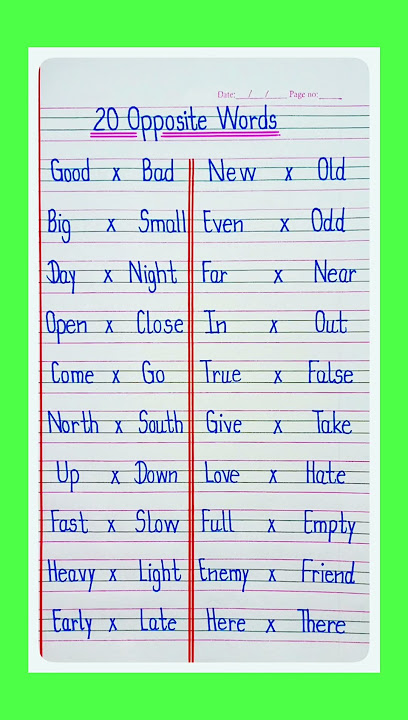 Date: __/__/__ Page no: ____
20 Opposite Words
Good x Bad
Big x Small
Day x Night
Open x Close
Come x Go
North x South
Up x Down
Fast x Slow
Heavy x Light
Early x Late
New x Old
Even x Odd
Far x Near
In x Out
True x False
Give x Take
Love x Hate
Full x Empty
Enemy x Friend
Here x There